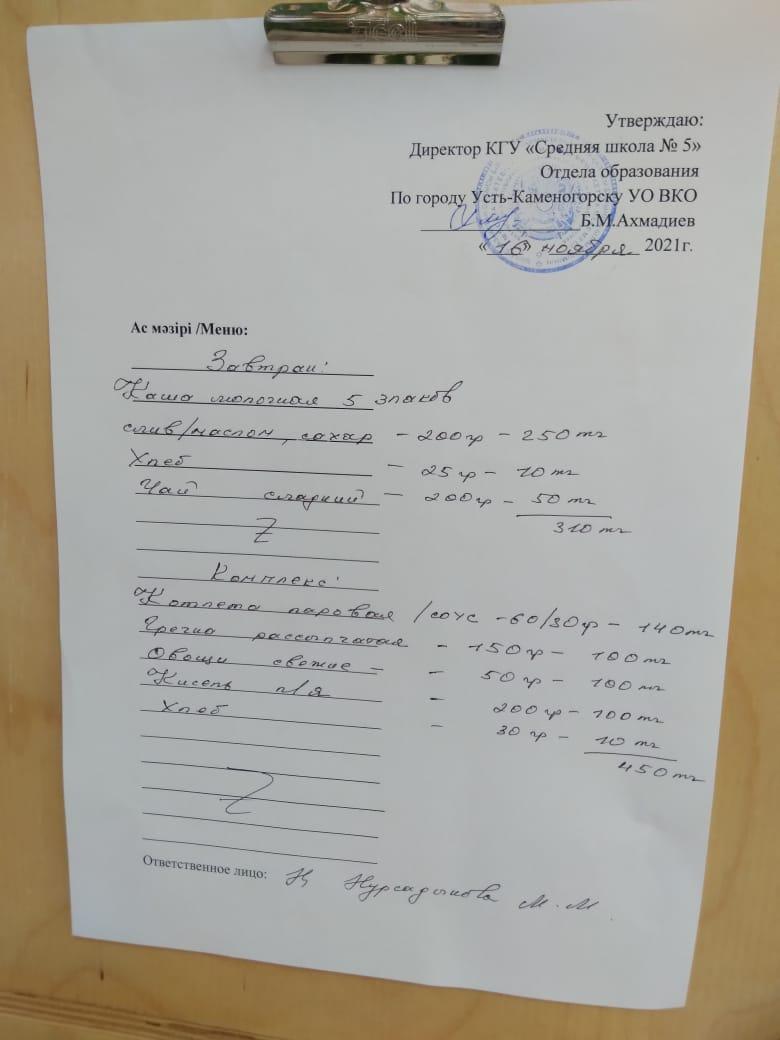 Утверждаю:
Директор КГУ «Средняя школа № 5»
Отдела образования
По городу Усть-Каменогорску УО ВКО
Б.М.Ахмадиев
«16» ноября 2021г.
Ас мәзірі /Меню:
Завтрак:
Каша молочная 5 злаков
слив/маслом, сахар - 200гр - 250 тг
Хлеб - 25гр - 10 тг
Чай сладкий - 200гр - 50 тг
310 тг
Комплекс:
Котлета паровая /соус - 60/30гр - 140тг
Гречка рассыпчатая - 150гр - 100тг
Овощи свежие - - 50гр - 100тг
Кисель п/я - 200гр - 100тг
Хлеб - 30 гр - 10 тг
450тг
Ответственное лицо: Нурсадыкова М.М.